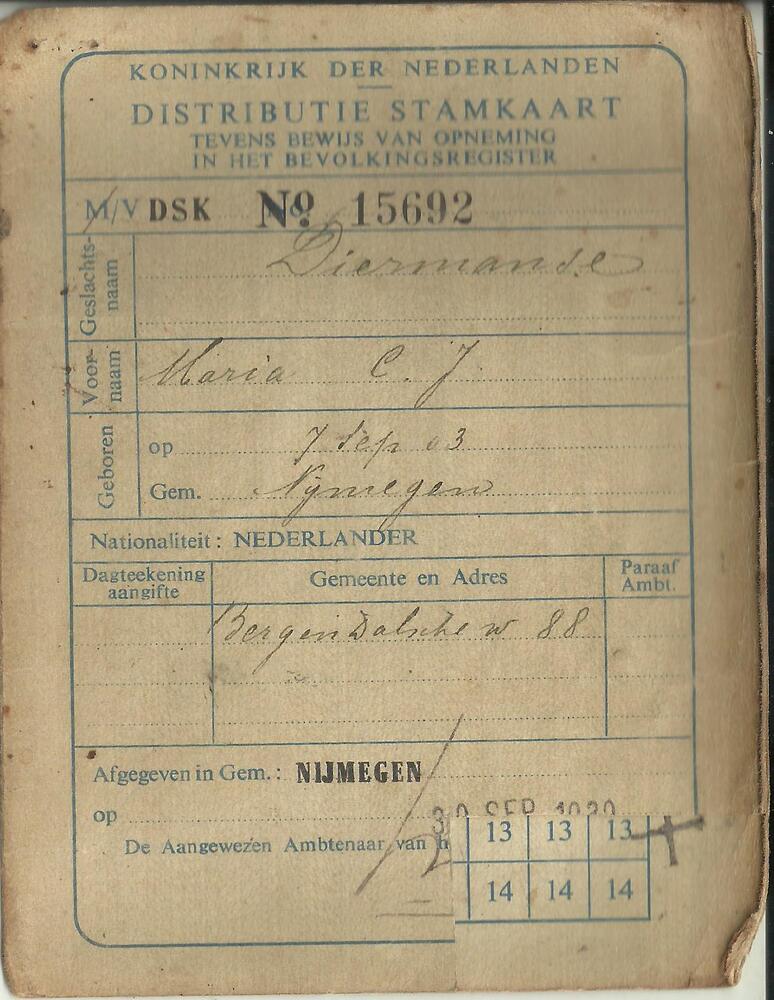 KONINKRIJK DER NEDERLANDEN
DISTRIBUTIE STAMKAART
TEVENS BEWIJS VAN OPNEMING
IN HET BEVOLKINGSREGISTER
M/V DSK No. 15692
Geslachts-
naam
Diermanse
Voor-
naam
Maria C. J.
Geboren
op 7 Sep 03
Gem. Nymegen
Nationaliteit: NEDERLANDER
Dagteekening
aangifte
Gemeente en Adres
Paraaf
Ambt.
Bergendalsche w 88
Afgegeven in Gem.: NIJMEGEN
op 30 SEP 1939
De Aangewezen Ambtenaar van h
13 13 13
14 14 14